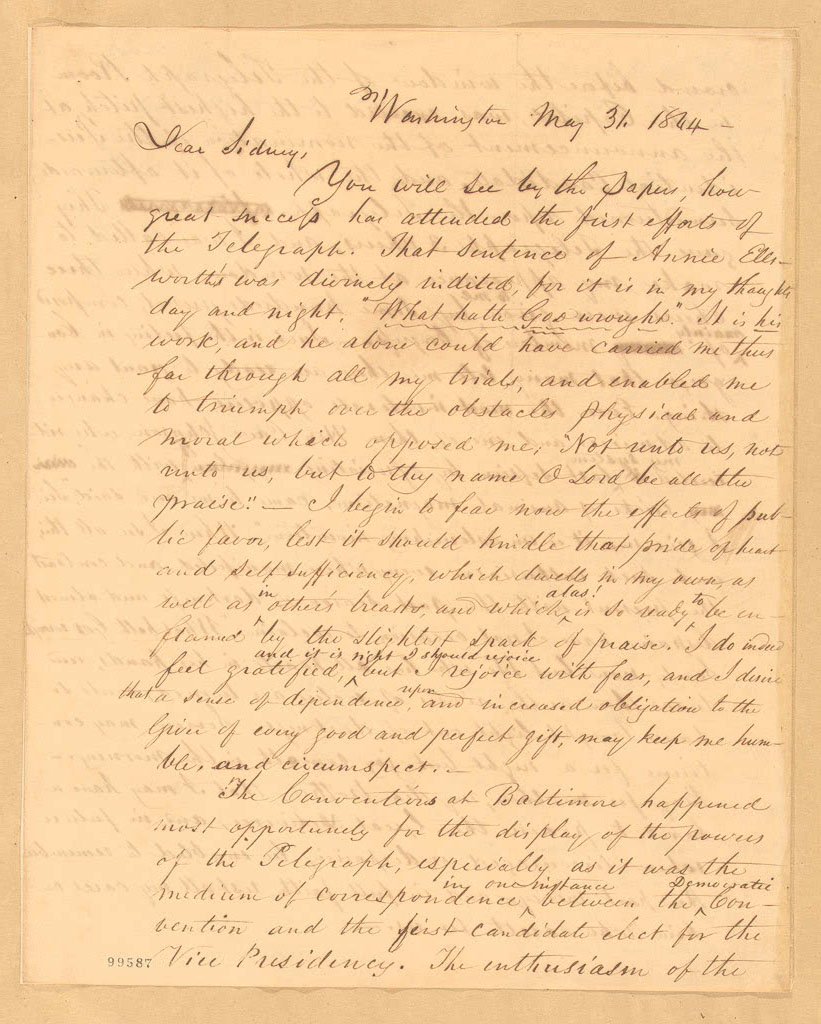 Washington May 31. 1844 –
Dear Sidney,
You will see by the Papers, how
great success has attended the first efforts of
the Telegraph. That sentence of Annie Ells-
worth's was divinely indited, for it is in my thoughts
day and night, "What hath God wrought." It is his
work, and he alone could have carried me thus
far through all my trials, and enabled me
to triumph over the obstacles physical and
moral which opposed me; "Not unto us, not
unto us, but to thy name O Lord be all the
praise." – I begin to fear now the effects of pub-
lic favor, lest it should kindle that pride of heart
and self sufficiency, which dwells in my own, as
well as in other's breasts, and which alas! is so ready to be en-
flamed by the slightest spark of praise. I do indeed
feel gratified, and it is right I should rejoice but I rejoice with fear, and I desire
that a sense of dependence upon and increased obligation to the
Giver of every good and perfect gift, may keep me hum-
ble, and circumspect. –
The Conventions at Baltimore happened
most opportunely for the display of the powers
of the Telegraph, especially as it was the
medium of correspondence in one instance between the Democratic Con-
vention and the first candidate elect for the
Vice Presidency. The enthusiasm of the
99587